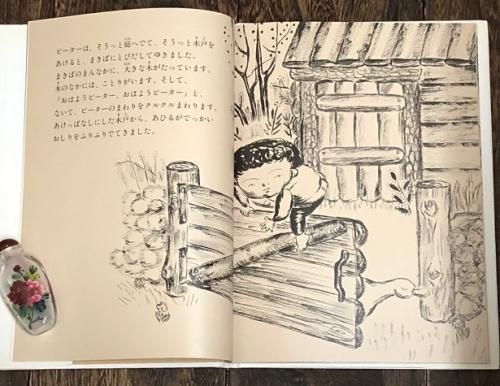 ピーターは、そうっと庭へでて、そうっと木戸を
あけると、まきばにとびだしてゆきました。
まきばのまんなかに、大きな木がたっています。
木のなかには、ことりがいます。そして、
「おはようピーター、おはようピーター」と、
ないて、ピーターのまわりをクルクルまわります。
あけっぱなしにした木戸から、あひるがでっかい
おしりをふりふりでてきました。